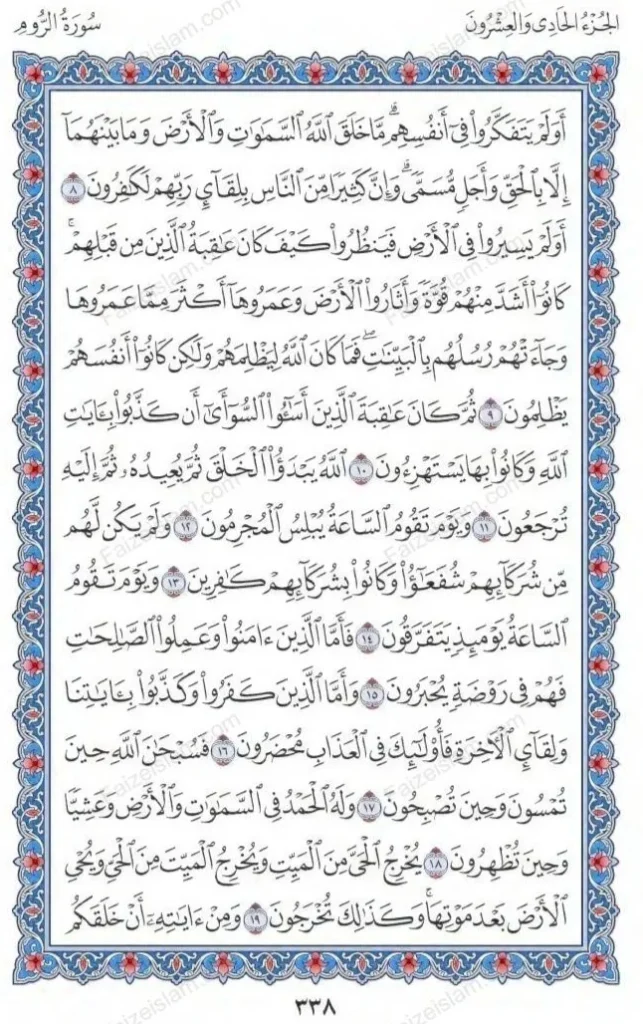 الجُزْءُ الحَادِى وَالعِشْرُونَ
سُورَةُ الرُّومِ
أَوَلَمْ يَتَفَكَّرُوا۟ فِىٓ أَنفُسِهِمۗ مَّا خَلَقَ ٱللَّهُ ٱلسَّمَٰوَٰتِ وَٱلْأَرْضَ وَمَا بَيْنَهُمَآ
إِلَّا بِٱلْحَقِّ وَأَجَلٍ مُّسَمًّىۗ وَإِنَّ كَثِيرًا مِّنَ ٱلنَّاسِ بِلِقَآئِ رَبِّهِمْ لَكَٰفِرُونَ ٨
أَوَلَمْ يَسِيرُوا۟ فِى ٱلْأَرْضِ فَيَنظُرُوا۟ كَيْفَ كَانَ عَٰقِبَةُ ٱلَّذِينَ مِن قَبْلِهِمْۚ
كَانُوٓا۟ أَشَدَّ مِنْهُمْ قُوَّةً وَأَثَارُوا۟ ٱلْأَرْضَ وَعَمَرُوهَآ أَكْثَرَ مِمَّا عَمَرُوهَا
وَجَآءَتْهُمْ رُسُلُهُم بِٱلْبَيِّنَٰتِۖ فَمَا كَانَ ٱللَّهُ لِيَظْلِمَهُمْ وَلَٰكِن كَانُوٓا۟ أَنفُسَهُمْ
يَظْلِمُونَ ٩ ثُمَّ كَانَ عَٰقِبَةَ ٱلَّذِينَ أَسَٰٓـُٔوا۟ ٱلسُّوٓأَىٰٓ أَن كَذَّبُوا۟ بِـَٔايَٰتِ
ٱللَّهِ وَكَانُوا۟ بِهَا يَسْتَهْزِءُونَ ١٠ ٱللَّهُ يَبْدَؤُا۟ ٱلْخَلْقَ ثُمَّ يُعِيدُهُۥ ثُمَّ إِلَيْهِ
تُرْجَعُونَ ١١ وَيَوْمَ تَقُومُ ٱلسَّاعَةُ يُبْلِسُ ٱلْمُجْرِمُونَ ١٢ وَلَمْ يَكُن لَّهُم
مِّن شُرَكَآئِهِمْ شُفَعَٰٓؤُا۟ وَكَانُوا۟ بِشُرَكَآئِهِمْ كَٰفِرِينَ ١٣ وَيَوْمَ تَقُومُ
ٱلسَّاعَةُ يَوْمَئِذٍ يَتَفَرَّقُونَ ١٤ فَأَمَّا ٱلَّذِينَ ءَامَنُوا۟ وَعَمِلُوا۟ ٱلصَّٰلِحَٰتِ
فَهُمْ فِى رَوْضَةٍ يُحْبَرُونَ ١٥ وَأَمَّا ٱلَّذِينَ كَفَرُوا۟ وَكَذَّبُوا۟ بِـَٔايَٰتِنَا
وَلِقَآئِ ٱلْءَاخِرَةِ فَأُو۟لَٰٓئِكَ فِى ٱلْعَذَابِ مُحْضَرُونَ ١٦ فَسُبْحَٰنَ ٱللَّهِ حِينَ
تُمْسُونَ وَحِينَ تُصْبِحُونَ ١٧ وَلَهُ ٱلْحَمْدُ فِى ٱلسَّمَٰوَٰتِ وَٱلْأَرْضِ وَعَشِيًّا
وَحِينَ تُظْهِرُونَ ١٨ يُخْرِجُ ٱلْحَىَّ مِنَ ٱلْمَيِّتِ وَيُخْرِجُ ٱلْمَيِّتَ مِنَ ٱلْحَىِّ وَيُحْىِ
ٱلْأَرْضَ بَعْدَ مَوْتِهَاۚ وَكَذَٰلِكَ تُخْرَجُونَ ١٩ وَمِنْ ءَايَٰتِهِۦٓ أَنْ خَلَقَكُم
٣٣٨
Faizeislam.com